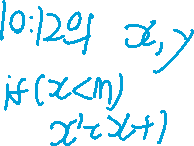 10:12의 x, y
if (x<m)
x'=x+1